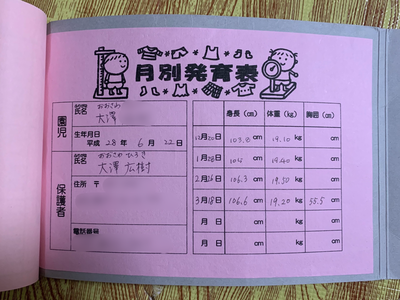 月別発育表
園児
氏名
おおさわ
大澤
生年月日
平成 28 年 6 月 22 日
保護者
氏名
おおさわ ひろき
大澤 広樹
住所 〒
電話番号
身長 (cm) 体重 (kg) 胸囲 (cm)
12月20日 103.8 cm 19.10 kg cm
1月28日 cm 19.40 kg cm
2月 日 106.3 cm 19.50 kg cm
3月18日 106.6 cm 19.20 kg 55.5 cm
月 日 cm kg cm
月 日 cm kg cm